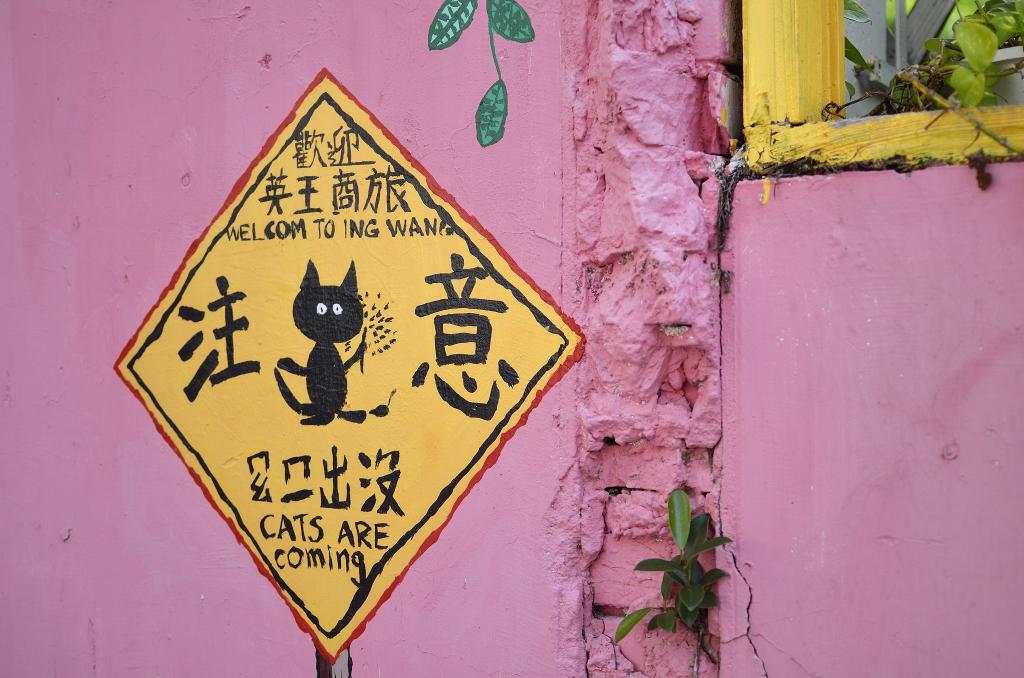 歡迎
英王商旅
WELCOM TO ING WANG
注意
出沒
CATS ARE
coming